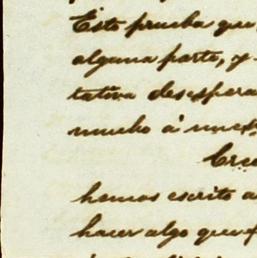 Esto prueba que
alguna parte, y
tativa desespera
mucho á nues
Cree
hemos escrito a
hacer algo que